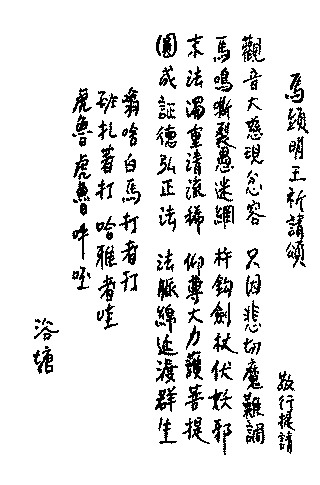 馬頭明王祈請頌
敬行提請
觀音大慈現忿容 只因悲切魔難調
馬鳴嘶裂愚迷網 杵鉤劍杖伏妖邪
末法濁重清流稀 仰尊大力護菩提
圓成証德弘正法 法脈綿延渡群生
翁啥白馬打者打
扎著打 哈雅者哇
虎魯虎魯吽
浴塘